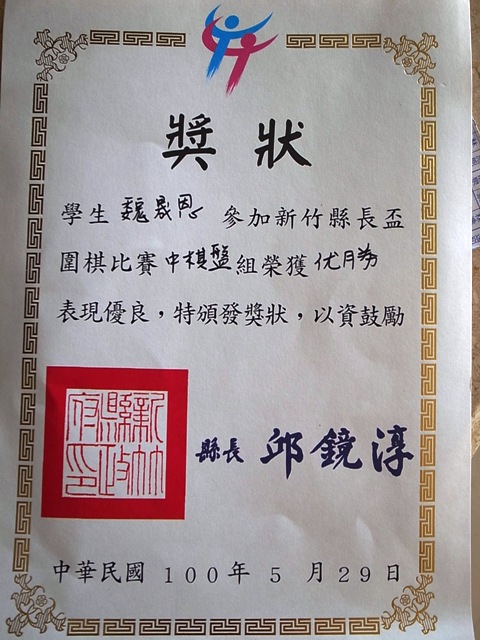 獎狀
學生 魏晟恩 參加新竹縣長盃
圍棋比賽中棋盤組榮獲优月勝
表現優良，特頒發獎狀，以資鼓勵
新竹縣政府印
縣長 邱鏡淳
中華民國 100年 5 月29日